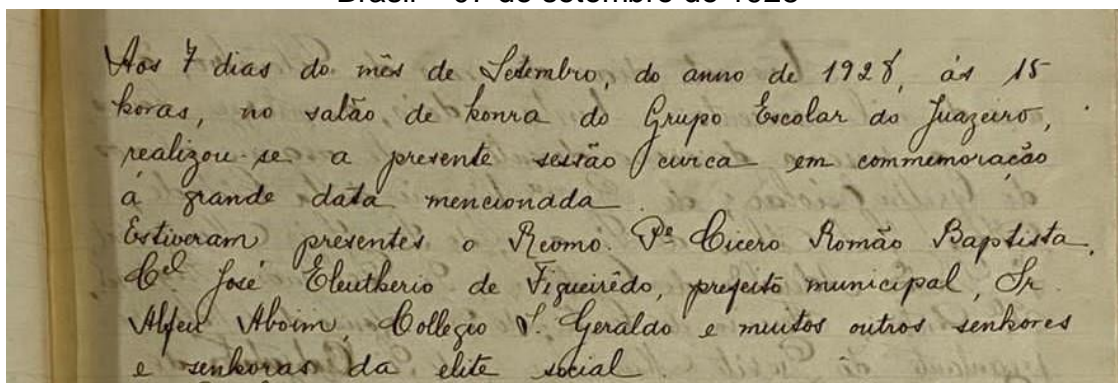 Aos 7 dias do mês de Setembro, do anno de 1928, ás 15
horas, no salão de honra do Grupo Escolar do Juazeiro,
realizou-se a presente sessão civica em commemoração
á grande data mencionada.
Estiveram presentes o Revmo. Pe Cicero Romão Baptista,
Cel José Eleutherio de Figueirêdo, prefeito municipal, Sr.
Alfeu Aboim, Collegio S. Geraldo e muitos outros senhores
e senhoras da elite social.